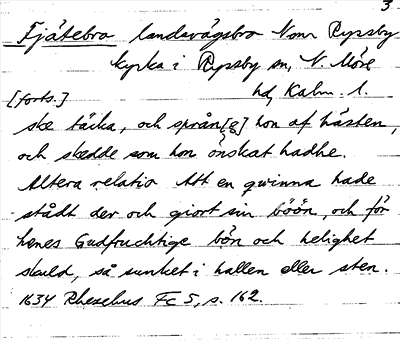 3
Fjätebro landsvägsbro N om Ryssby
kyrka i Ryssby sn, N. Möre
hd, Kalm. l.
[forts.]
ske täcka, och språn[g] hon af hästen,
och skedde som hon önskat hadhe.
Altera relatio Att en qwinna hade
stådt der och giort sin böön, och för
henes Gudfruchtige bön och helighet
skuld, så sunket i hallen eller sten.
1634 Rhezelius Fc 5, s. 162.